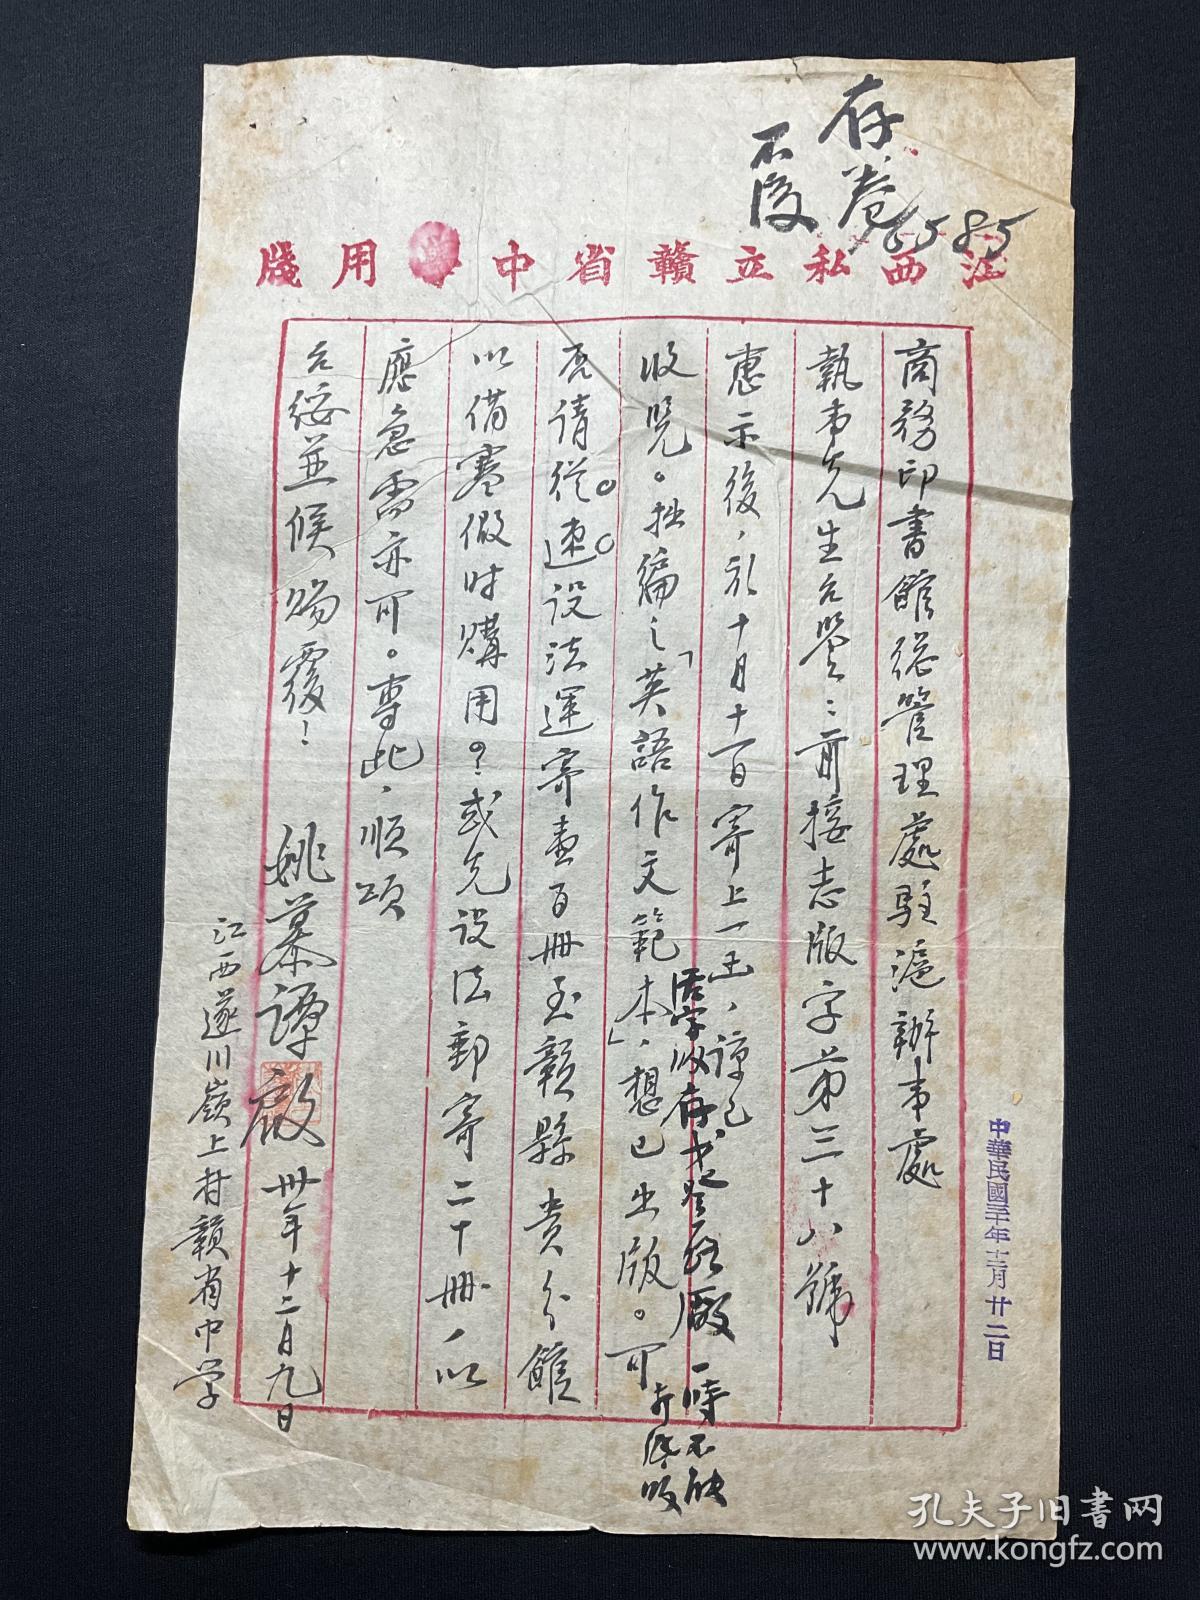 存卷
不覆
6585
江西私立贛省中學用牋
商務印書館總管理處駐滬辦事處
執事先生台鑒：前接志版字第三十八號
惠示後，於十月十一日寄上一函，諒已
收覽。拙編之「英語作文範本」，想已出版。可
否請從速設法運寄壹百冊至贛縣貴分館
以備寒假時購用？或先設法郵寄二十冊，以
應急需亦可。專此，順頌
台綏並候賜覆！
姚慕譚啟 卅年十二月九日
江西遂川嶺上村贛省中学
存書登路廠一時不能
中華民國三十年十二月廿二日
孔夫子旧书网
www.kongfz.com